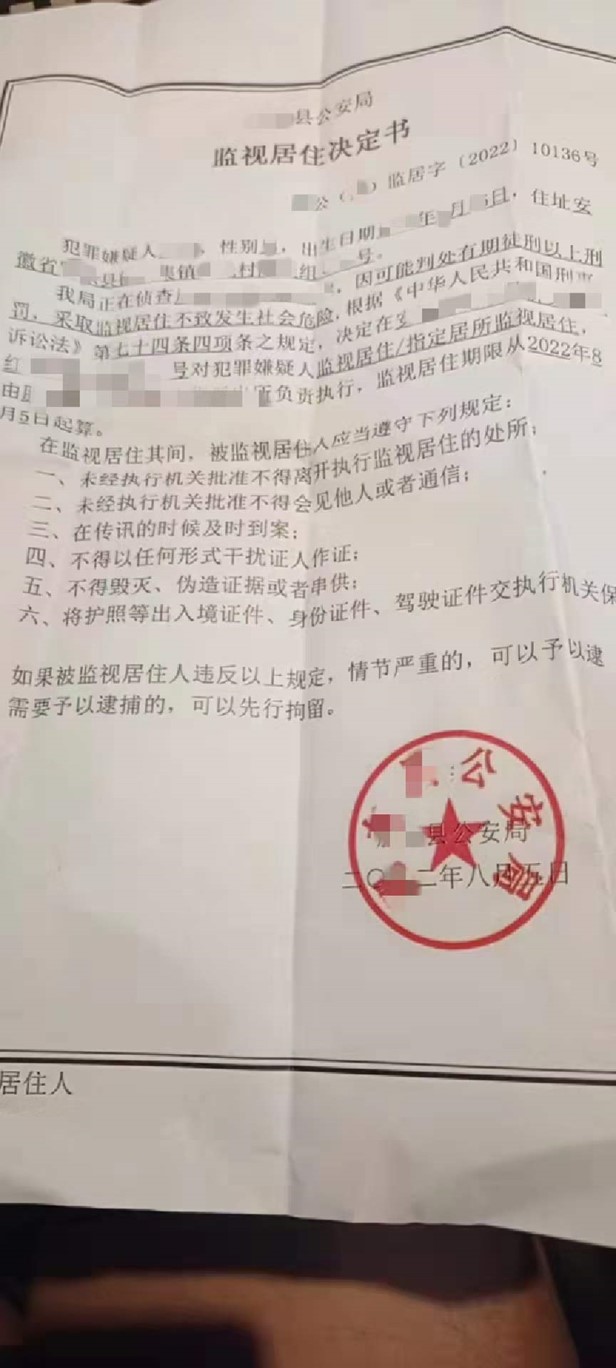 县公安局
监视居住决定书
公（ ）监居字〔2022〕10136号
犯罪嫌疑人 ，性别 ，出生日期 年 月 日，住址安
徽省 县 镇 村 组 号。
我局正在侦查 ，因可能判处有期徒刑以上刑
罚，采取监视居住不致发生社会危险，根据《中华人民共和国刑事
诉讼法》第七十四条四项条之规定，决定在
红 号对犯罪嫌疑人监视居住/指定居所监视居住，
由 负责执行，监视居住期限从2022年8
月5日起算。
在监视居住其间，被监视居住人应当遵守下列规定：
一、未经执行机关批准不得离开执行监视居住的处所；
二、未经执行机关批准不得会见他人或者通信；
三、在传讯的时候及时到案；
四、不得以任何形式干扰证人作证；
五、不得毁灭、伪造证据或者串供；
六、将护照等出入境证件、身份证件、驾驶证件交执行机关保
如果被监视居住人违反以上规定，情节严重的，可以予以逮
需要予以逮捕的，可以先行拘留。
公安局
县公安局
二〇 二年八月五日
居住人